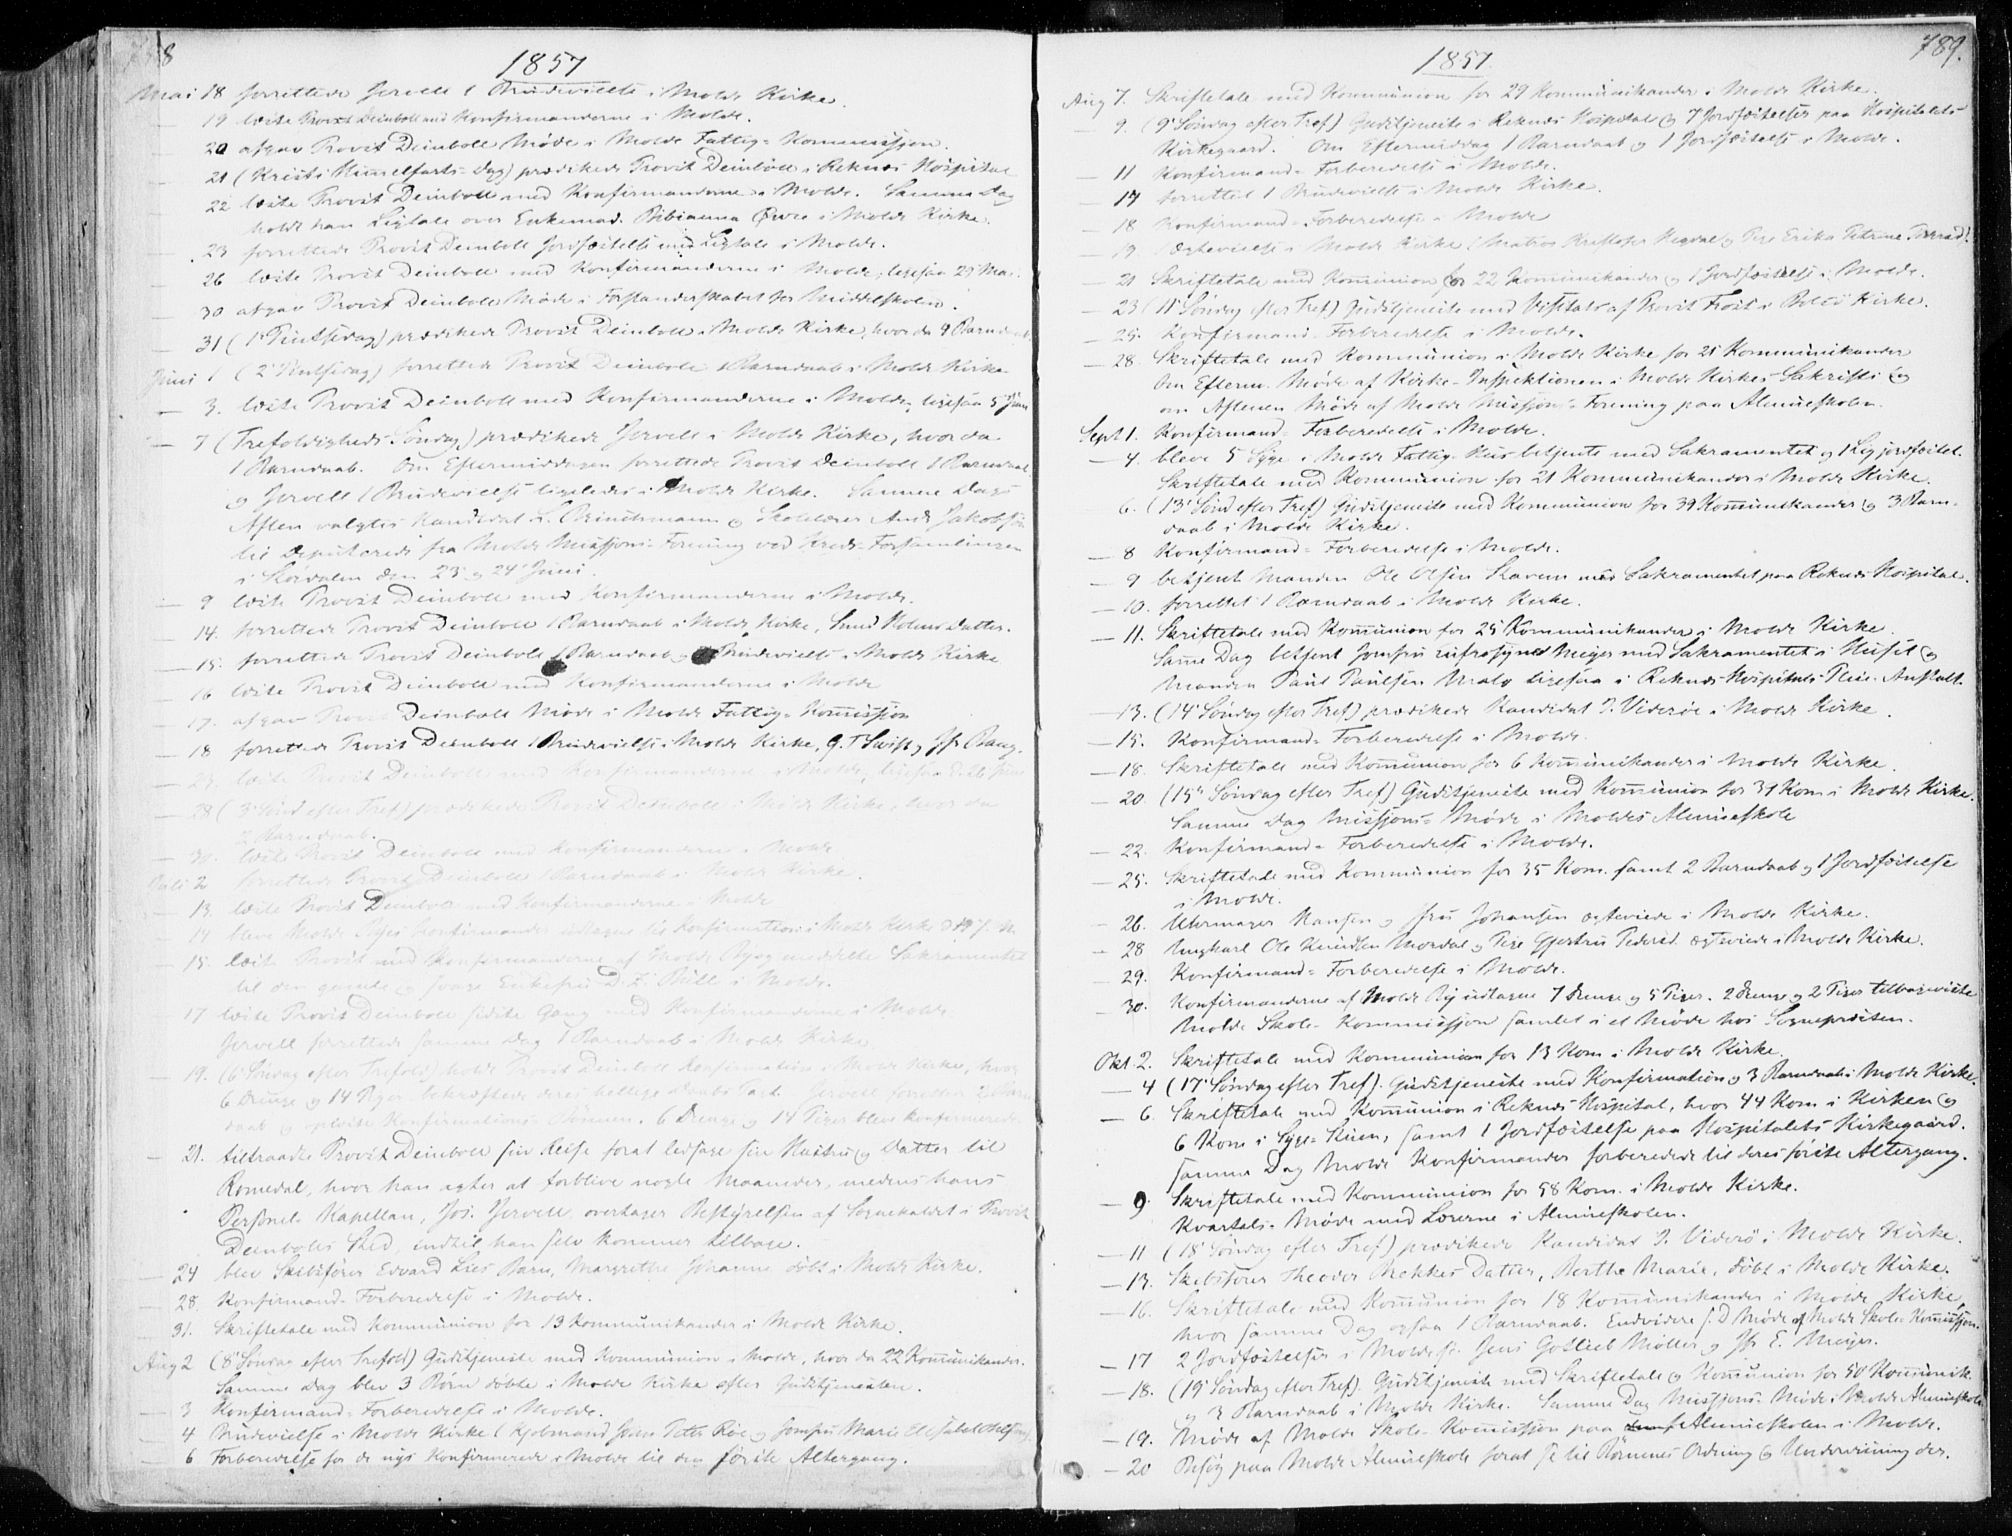 788
1857
Mai 18 forrettede Jervell 1 Brudevielse i Molde Kirke.
— 19 læste Provst Deinboll med Konfirmanderne i Molde.
— 20 afgav Provst Deinboll Møde i Molde Fattig-Kommission.
— 21 (Kristi Himmelfarts-Dag) prædikede Provst Deinboll i Reknes Hospital
— 22 læste Provst Deinboll med Konfirmanderne i Molde. Samme Dag
holdt han Ligtale over Enkemad. Bibianna Øvre i Molde Kirke.
— 23 forrettede Provst Deinboll Jordfæstelse med Ligtale i Molde.
— 26 læste Provst Deinboll med Konfirmanderne i Molde, ligesaa 29 Mai.
— 30 afgav Provst Deinboll Møde i Forstanderskabet for Middelskolen.
— 31 (1 Pintsedag) prædikede Provst Deinboll i Molde Kirke, hvor da 9 Barndaab.
Juni 1 (2 Pintsedag) forrettede Provst Deinboll Barndaab i Molde Kirke
— 3. læste Provst Deinboll med Konfirmanderne i Molde, ligesaa 5 Juni
— 7 (Trefoldigheds Søndag) prædikede Jervell i Molde Kirke, hvor da
1 Barndaab. Om Eftermiddagen forrettede Provst Deinboll 1 Barndaab
og Jervell 1 Brudevielse ligeledes i Molde Kirke. Samme Dags
Aften valgtes Kandidat L. Brinchmann og Skolelærer And. Jakobsen
til Deputerede fra Molde Missions-Forening ved Kreds-Forsamlingen
i den 23 og 24 Juni.
— 9 læste Provst Deinboll med Konfirmanderne i Molde.
— 14. forrettede Provst Deinboll 1 Barndaab i Molde Kirke, Datter.
— 15. forrettede Provst Deinboll 1 Barndaab og 1 Brudevielse i Molde Kirke
— 16 læste Provst Deinboll med Konfirmanderne i Molde
— 17. afgav Provst Deinboll Møde i Molde Fattig-Kommission
— 18 forrettede Provst Deinboll 1 Brudevielse i Molde Kirke, G. T. Swift og Jfr Bang.
— 23. læste Provst Deinboll med Konfirmanderne i Molde, ligesaa d. 26 Juni
— 28 (3 Sønd. efter Tref.) prædikede Provst Deinboll i Molde Kirke, hvor da
2 Barndaab.
— 30. læste Provst Deinboll med Konfirmanderne i Molde
Juli 2 forrettede Provst Deinboll 1 Barndaab i Molde Kirke.
— 13. læste Provst Deinboll med Konfirmanderne i Molde
— 14 bleve Molde Byes Konfirmander til Konfirmation i Molde Kirke
— 15. læste Provst med Konfirmanderne af Molde By og meddelte Sakramentet
til den gamle og svage Enkefru i Molde.
— 17 læste Provst Deinboll sidste Gang med Konfirmanderne i Molde.
Jervell forrettede samme Dag 1 Barndaab i Molde Kirke
— 19. (6 Søndag efter Trefold.) holdt Provst Deinboll Konfirmation i Molde Kirke, hvor
6 Drenge og 14 Piger bekræftede deres hellige Daabs Pagt. Jervell forrettede 2 Barn-
daab og oplæste Konfirmations Bønnen. 6 Drenge og 14 Piger blev konfirmerede.
— 21. tiltraadte Provst Deinboll sin Reise forat ledsage sin Hustru og Datter til
Romedal, hvor han agter at forblive nogle Maaneder, medens hans
Personel Kapellan, Jos. Jervell overtager Bestyrelsen af Sognekaldet i Provst
Deinbolls Sted, indtil han selv kommer tilbage.
— 24 blev Skibsfører Edvard Lies Barn, Margrethe Johanne døbt i Molde Kirke.
— 28. Konfirmand-Forberedelse i Molde.
31. Skriftetale med Kommunion for 13 Kommunikander i Molde Kirke.
Aug 2 (8 Søndag efter Trefold) Gudstjeneste med Kommunion i Molde, hvor da 22 Kommunikander.
Samme Dag blev 3 Børn døbte i Molde Kirke efter Gudstjenesten.
— 3 Konfirmand-Forberedelse i Molde.
— 4 Brudevielse i Molde Kirke (Kjøbmand Peter Röe og Jomfru Marie Elisabet
— 6 Forberedelse for de nys Konfirmerede i Molde til den første Altergang.
789.
1857.
Aug 7. Skriftetale med Kommunion for 29 Kommunikander i Molde Kirke.
— 9. (9 Søndag efter Tref) Gudstjeneste i Reknes Hospital og 7 Jordfæstelser paa Hospitalets
Kirkegaard. Om Eftermiddag 1 Barndaab og 1 Jordfæstelse i Molde.
— 11 Konfirmand-Forberedelse i Molde.
— 14 forrettet 1 Brudevielse i Molde Kirke.
— 18 Konfirmand-Forberedelse i Molde
— 19 Ægtevielse i Molde Kirke (Kristofer og Pige Erika Petrine
— 21 Skriftetale med Kommunion for 22 Kommunikander og 1 Jordfæstelse i Molde.
— 23 (11 Søndag efter Tref) Gudstjeneste med Visitats af Provst i Bolsö Kirke.
— 25. Konfirmand-Forberedelse i Molde.
— 28. Skriftetale med Kommunion i Molde Kirke for 21 Kommunikander
Om Efterm. Møde af Kirke-Inspektionen i Molde Kirkes Sakristi og
om Aftenen Møde af Molde Missions-Forening paa Almueskolen.
Sept 1. Konfirmand-Forberedelse i Molde.
— 4. bleve 5 Syge i Molde Fattig-Huus betjente med Sakramentet og 1 Lig jordfæstet.
Skriftetale med Kommunion for 21 Kommunikander i Molde Kirke.
6. (13 Sønd efter Tref) Gudstjeneste med Kommunion for 39 Kommunikander og 3 Barn-
daab i Molde Kirke.
— 8 Konfirmand-Forberedelse i Molde.
— 9 betjent Manden Ole Olsen med Sakramentet paa Reknes Hospital.
— 10. forrettet 1 Barndaab i Molde Kirke.
— 11. Skriftetale med Kommunion for 25 Kommunikander i Molde Kirke.
Samme Dag betjent Jomfru Eufrosyne Meyer med Sakramentet i Huset og
Manden Paul Paulsen Malo ligesaa i Reknes Hospitals Pleie-Anstalt.
— 13. (14 Søndag efter Tref) prædikede Kandidat J. Viderøe i Molde Kirke.
— 15. Konfirmand-Forberedelse i Molde.
— 18. Skriftetale med Kommunion for 6 Kommunikander i Molde Kirke.
— 20. (15 Søndag efter Tref) Gudstjeneste med Kommunion for 39 Kom i Molde Kirke.
Samme Dag Missions-Møde i Moldes Almueskole
— 22. Konfirmand-Forberedelse i Molde.
— 25. Skriftetale med Kommunion for 35 Kom. samt 2 Barndaab og 1 Jordfæstelse
i Molde.
— 26. Uhrmager Hansen og Jfru Johansen ægteviede i Molde Kirke.
— 28 Ungkarl Ole Knudsen Mordal og Pige Gjertru Pedersd. ægteviede i Molde Kirke.
— 29. Konfirmand-Forberedelse i Molde.
— 30. Konfirmanderne af Molde By udtagne 7 Drenge og 5 Piger. 2 Drenge og 2 Piger tilbageviste
Molde Skole-Kommission samlet i et Møde hos Sognepræsten.
Okt. 2. Skriftetale med Kommunion for 13 Kom. i Molde Kirke.
— 4 (17 Søndag efter Tref). Gudstjeneste med Konfirmation og 3 Barndaab i Molde Kirke.
— 6. Skriftetale med Kommunion i Reknes Hospital, hvor 44 Kom i Kirken og
6 Kom i Syge-Stuen, samt 1 Jordfæstelse paa Hospitalets Kirkegaard.
Samme Dag Molde Konfirmander forberedede til deres første Altergang.
— 9. Skriftetale med Kommunion for 58 Kom. i Molde Kirke.
Kvartals-Møde med Lærerne i Almueskolen.
— 11 (18 Søndag efter Tref) prædikede Kandidat J. Viderö i Molde Kirke.
— 13. Skibsfører Theodor Bekkes Datter, Berthe Marie, døbt i Molde Kirke.
— 16. Skriftetale med Kommunion for 18 Kommunikander i Molde Kirke,
hvor samme Dag ogsaa 1 Barndaab. Endvidere s. D Møde af Molde Skole-Kommission.
— 17 2 Jordfæstelser i Molde Jens Gotlieb Möller og Jfr E. Meyer.
— 18. (19 Søndag efter Tref). Gudstjeneste med Skriftetale og Kommunion for 50 Kommunik.
og 3 Barndaab i Molde Kirke. Samme Dag Missions-Møde i Molde Almueskole.
— 19. Møde af Molde Skole-Kommission paa Almueskolen i Molde.
— 20 Besøg paa Molde Almueskole forat se til Børnenes Ordning og Underviisning der.